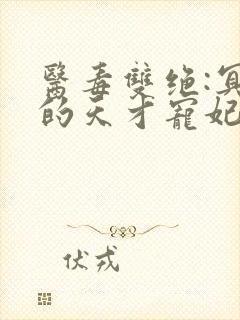 醫毒雙绝:冥
的天才寵妃
伏戎